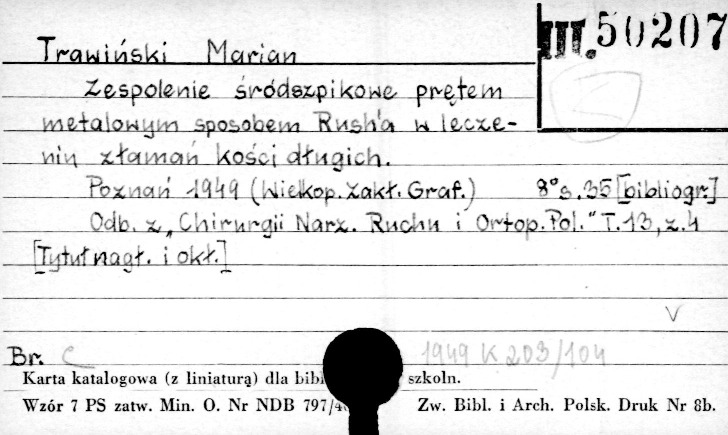 III. 50207
Trawiński Marian
Zespolenie śródszpikowe prętem
metalowym sposobem Rush'a w lecze-
niu złamań kości długich.
Poznań 1949 (Wielkop. Zakł. Graf.) 8° s. 35 [bibliogr.]
Odb. z „Chirurgii Narz. Ruchu i Ortop. Pol." T. 13, z. 4
[Tytuł nagł. i okł.]
V
Br. C 1949 K 203/104
Karta katalogowa (z liniaturą) dla bibl szkoln.
Wzór 7 PS zatw. Min. O. Nr NDB 797/4 Zw. Bibl. i Arch. Polsk. Druk Nr 8b.